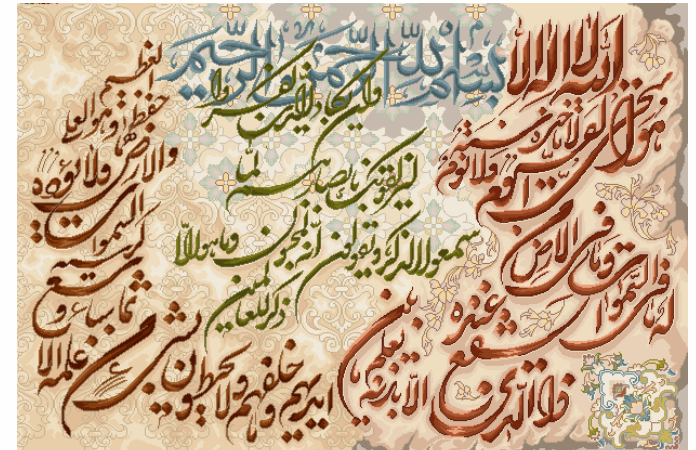 بسم الله الرحمن الرحيم
الله لا اله الا
هو الحي القيوم لا تأخذه سنة ولا نوم
له ما في السموات وما في الارض
من ذا الذي يشفع عنده
الا باذنه يعلم ما بين
ايديهم وما خلفهم ولا يحيطون بشيء من
علمه الا
بما شاء وسع
كرسيه السموات
والارض ولا يؤده
حفظهما وهو العلي
العظيم
وان يكاد الذين كفروا
ليزلقونك بابصارهم لما
سمعوا الذكر ويقولون انه لمجنون وما هو الا
ذكر للعالمين